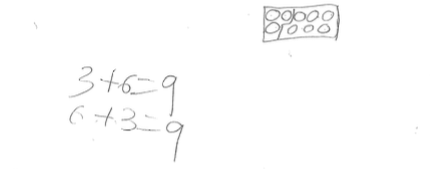 3+6=9
6+3=9